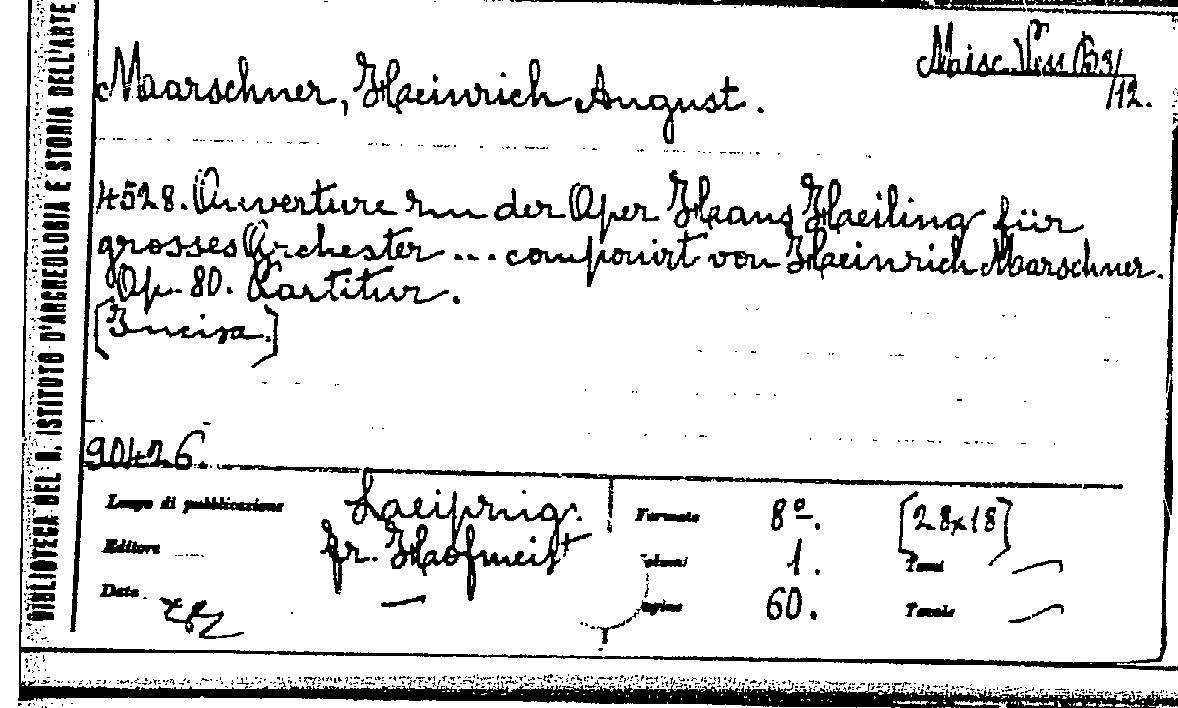 BIBLIOTECA DEL R. ISTITUTO D'ARCHEOLOGIA E STORIA DELL'ARTE
Misc. Vess B3/12.
Marschner, Heinrich August.
4528. Ouverture zu der Oper Hans Heiling für
grosses Orchester ... componirt von Heinrich Marschner.
Op. 80. Partitur.
[Incisa.]
90426
Luogo di pubblicazione Leipzig. Formato 8º. [28x18]
Editore Fr. Hofmeist Volumi 1. Tomi —
Data — Pagine 60. Tavole —